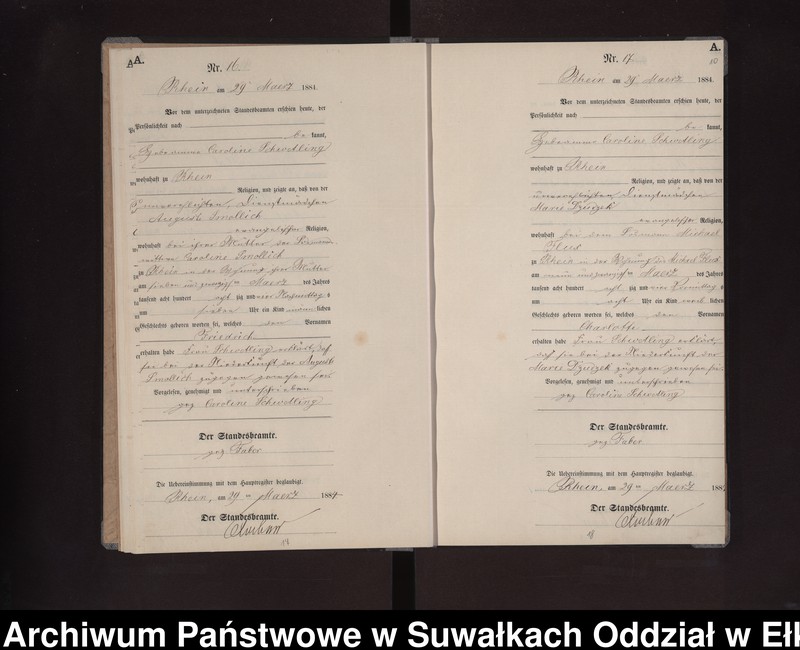 A.
Nr. 16.
Rhein am 29 Maerz 1884.
Vor dem unterzeichneten Standesbeamten erschien heute, der
Persönlichkeit nach
be kannt,
Hebeamme Caroline Schwetling
wohnhaft zu Rhein
Religion, und zeigte an, daß von der
unverehelichten Dienstmädchen
Auguste Smollich
evangelischer Religion,
wohnhaft bei ihrer Mutter
Caroline Smollich
zu Rhein in der Wohnung ihrer Mutter
am sieben und zwanzigsten Maerz des Jahres
tausend acht hundert acht zig und vier Nachmittag s
um sieben Uhr ein Kind männ lichen
Geschlechts geboren worden sei, welches den Vornamen
Friedrich
erhalten habe Frau Schwetling erklärt, daß
sie bei der Niederkunft der Auguste
Smollich zugegen gewesen sei
Vorgelesen, genehmigt und unterschrieben
gez Caroline Schwetling
Der Standesbeamte.
gez Faber
Die Uebereinstimmung mit dem Hauptregister beglaubigt.
Rhein, am 29 ten Maerz 1884
Der Standesbeamte.
A.
Nr. 17
10
Rhein am 29 Maerz 1884
Vor dem unterzeichneten Standesbeamten erschien heute, der
Persönlichkeit nach
be kannt,
Hebeamme Caroline Schwetling
wohnhaft zu Rhein
Religion, und zeigte an, daß von der
unverehelichten Dienstmädchen
Marie
evangelischer Religion,
wohnhaft bei dem Michael
zu Rhein in der Wohnung des Michael
am neun und zwanzigsten Maerz des Jahres
tausend acht hundert acht zig und vier Vormittag s
um acht Uhr ein Kind weib lichen
Geschlechts geboren worden sei, welches den Vornamen
Charlotte
erhalten habe Frau Schwetling erklärt,
daß sie bei der Niederkunft der
Marie zugegen gewesen sei
Vorgelesen, genehmigt und unterschrieben
gez Caroline Schwetling
Der Standesbeamte.
gez Faber
Die Uebereinstimmung mit dem Hauptregister beglaubigt.
Rhein, am 29 ten Maerz 188
Der Standesbeamte.
Archiwum Państwowe w Suwałkach Oddział w Ełk